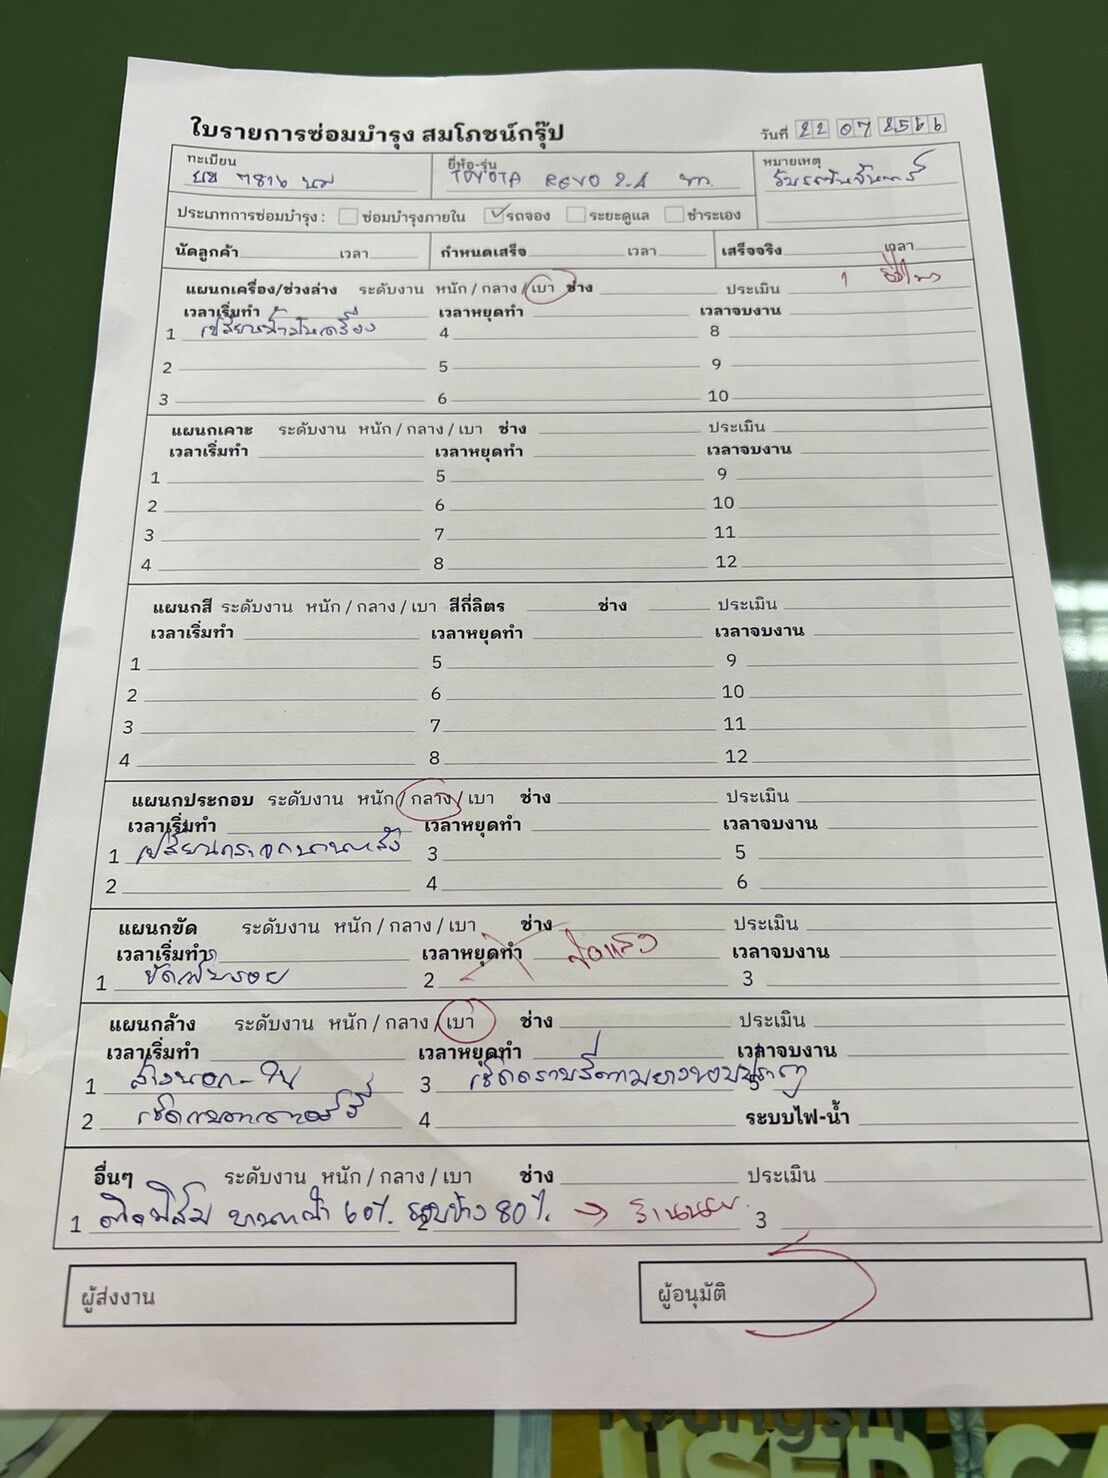 ใบรายการซ่อมบำรุง สมโภชน์กรุ๊ป วันที่ 22 07 2566
ทะเบียน ยี่ห้อ-รุ่น หมายเหตุ
บย 7816 นม TOYOTA REVO 2.4 ขาว รับรถวันจันทร์
ประเภทการซ่อมบำรุง : ซ่อมบำรุงภายใน รถจอง ระยะดูแล ชำระเอง
นัดลูกค้า เวลา กำหนดเสร็จ เวลา เสร็จจริง เวลา
แผนกเครื่อง/ช่วงล่าง ระดับงาน หนัก / กลาง / เบา ช่าง ประเมิน 1 ชั่วโมง
เวลาเริ่มทำ เวลาหยุดทำ เวลาจบงาน
1 เปลี่ยนน้ำมันเครื่อง 4 8
2 5 9
3 6 10
แผนกเคาะ ระดับงาน หนัก / กลาง / เบา ช่าง ประเมิน
เวลาเริ่มทำ เวลาหยุดทำ เวลาจบงาน
1 5 9
2 6 10
3 7 11
4 8 12
แผนกสี ระดับงาน หนัก / กลาง / เบา สีกี่ลิตร ช่าง ประเมิน
เวลาเริ่มทำ เวลาหยุดทำ เวลาจบงาน
1 5 9
2 6 10
3 7 11
4 8 12
แผนกประกอบ ระดับงาน หนัก / กลาง / เบา ช่าง ประเมิน
เวลาเริ่มทำ เวลาหยุดทำ เวลาจบงาน
1 เปลี่ยนกระจกบานหลัง 3 5
2 4 6
แผนกขัด ระดับงาน หนัก / กลาง / เบา ช่าง ประเมิน
เวลาเริ่มทำ เวลาหยุดทำ เวลาจบงาน
1 ขัดเก็บรอย 2 3
แผนกล้าง ระดับงาน หนัก / กลาง / เบา ช่าง ประเมิน
เวลาเริ่มทำ เวลาหยุดทำ เวลาจบงาน
1 ล้างนอก-ใน 3 เช็ดคราบสีตามยางขอบประตู 5
2 เช็ดแบตเตอร์รี่ 4 ระบบไฟ-น้ำ
อื่นๆ ระดับงาน หนัก / กลาง / เบา ช่าง ประเมิน
1 ติดฟิล์ม บานหน้า 60%. รอบข้าง 80%. → 3
ผู้ส่งงาน ผู้อนุมัติ
Krungsri
USED CA